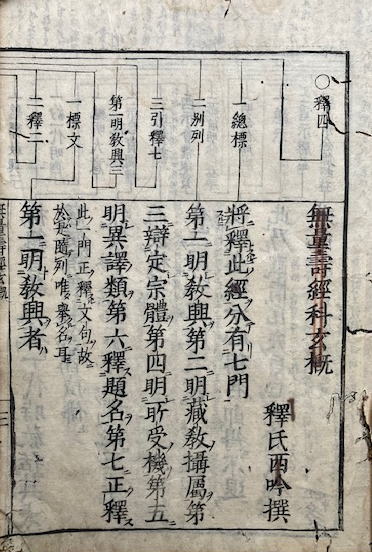 ○釋四
一總標
二別列
三引釋七
第一明敎興三
一標文
二釋二
無量壽經科玄概
釋氏西吟撰
將釋此經分有七門
第一明敎興第二明藏敎攝屬第
三辯定宗體第四明所受機第五
明異譯類第六釋題名第七正釋
此一門正釋文句故
於是隨列唯擧名耳
第一明敎興者